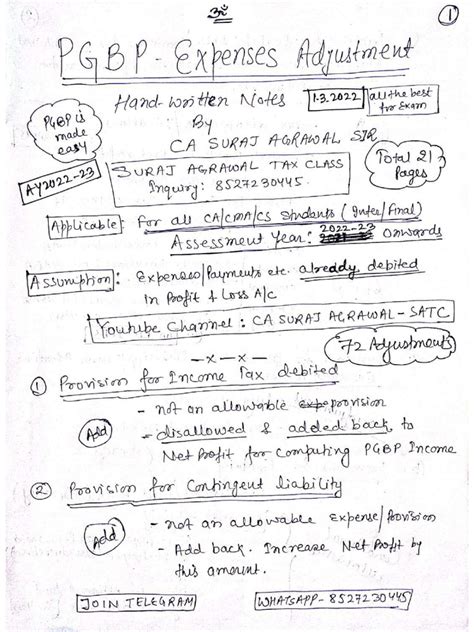 ॐ
1
PGBP - Expenses Adjustment
Hand-written Notes
1.3.2022
all the best for Exam
PGBP is made easy
By
CA SURAJ AGRAWAL SIR
Total 21 Pages
AY2022-23
SURAJ AGRAWAL TAX CLASS
Inquiry: 8527230445.
Applicable: For all CA/CMA/CS Students (Inter/Final)
Assessment Year: 2022-23 onwards
Assumption: Expenses/Payments etc. already debited
in Profit & Loss A/c
Youtube Channel: CA SURAJ AGRAWAL-SATC
72 Adjustments
—x—x—
1 Provision for Income Tax debited
- not an allowable provision
Add
- disallowed & added back to
Net Profit for computing PGBP Income
2 Provision for Contingent liability
- not an allowable Expense/provision
Add
- Add back. Increase Net Profit by
this amount.
JOIN TELEGRAM
WHATSAPP - 8527230445